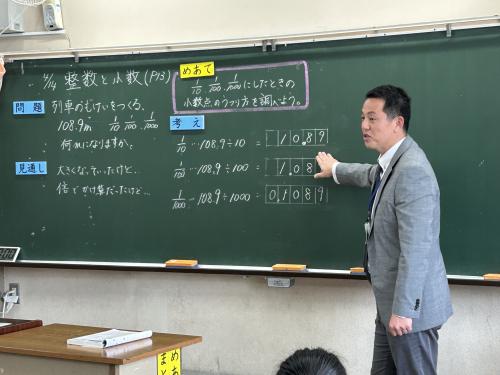 4/14 整数と小数(P13)
めあて
1/10 1/100 1/1000 にしたときの
小数点のうつり方を調べよう。
問題
列車のもけいをつくる。
108.9m 1/10 1/100 1/1000
何mになりますか。
見通し
大きくなっていたけど…
倍でかけ算だったけど…
考え
1/10 … 108.9÷10 = 10.89
1/100 … 108.9÷100 = 1.089
1/1000 … 108.9÷1000 = 0.1089
めあて
まと